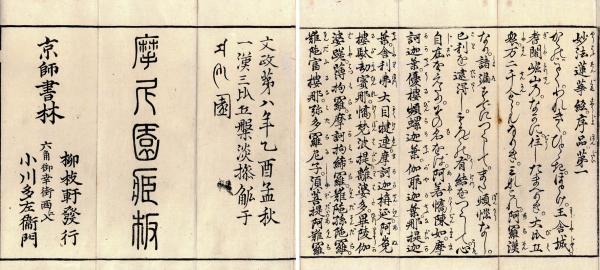 妙法蓮華經序品第一
かくのことくわれきゝき。ひとゝきほとけ王舎城
耆闍崛山乃なかに住したまひき。大比丘
衆万二千人と なりき。みなこれ阿羅漢
なり。諸漏すてにつくしてまた煩惱なし。
己利を逮得し。もろ〳〵の有結をつくして。心
自在をえたり。その名をは。阿若憍陳如。摩
訶迦葉。優樓頻螺迦葉。伽耶迦葉。那提迦
葉。舎利弗。大目犍連。摩訶迦旃延。阿㝹
樓馱。劫賓那。憍梵波提。離婆多。畢陵伽
婆蹉。薄拘羅。摩訶拘絺羅。難陀。孫陀羅
難陀。富樓那弥多羅尼子。須菩提。阿難。羅
文政第八年乙酉孟秋
一漢三比丘槃淡搽觚于
園
摩尼園蔵板
柳枝軒發行
京師書林
六角御幸街西ヘ
小川多左衞門